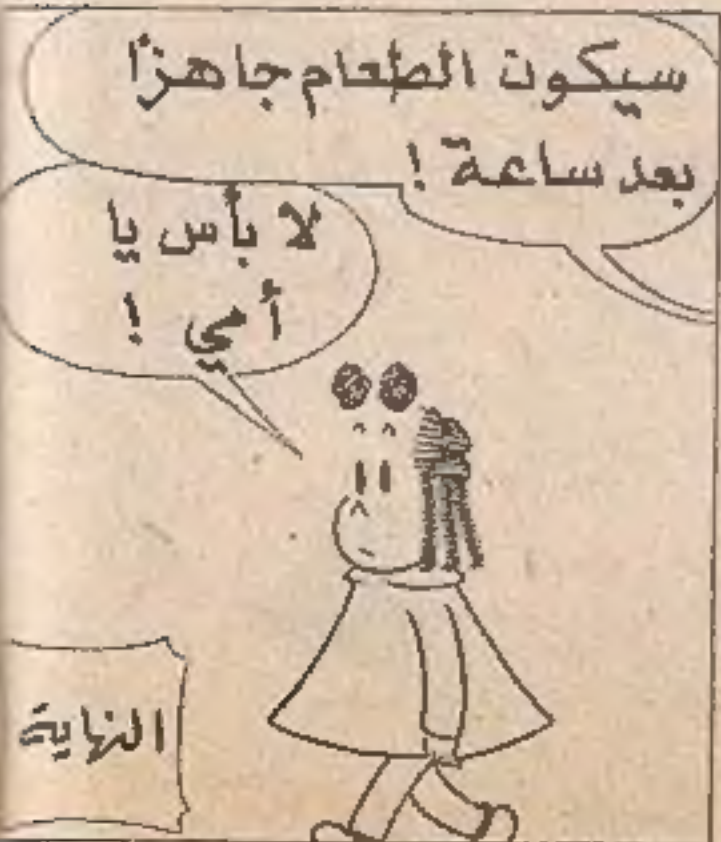 سيكون الطعام جاهزًا
بعد ساعة !
لا بأس يا
أمي !
النهاية